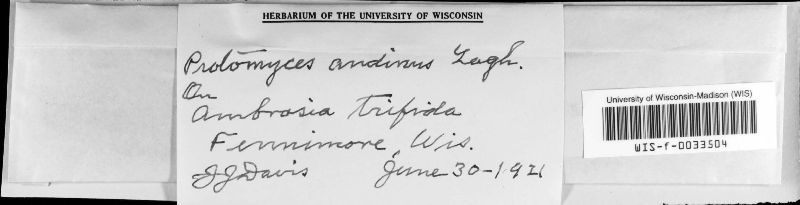 HERBARIUM OF THE UNIVERSITY OF WISCONSIN
Protomyces andinus Lagh.
On
Ambrosia trifida
Fennimore, Wis.
JJDavis June 30-1921
University of Wisconsin-Madison (WIS)
WIS-f-0033504